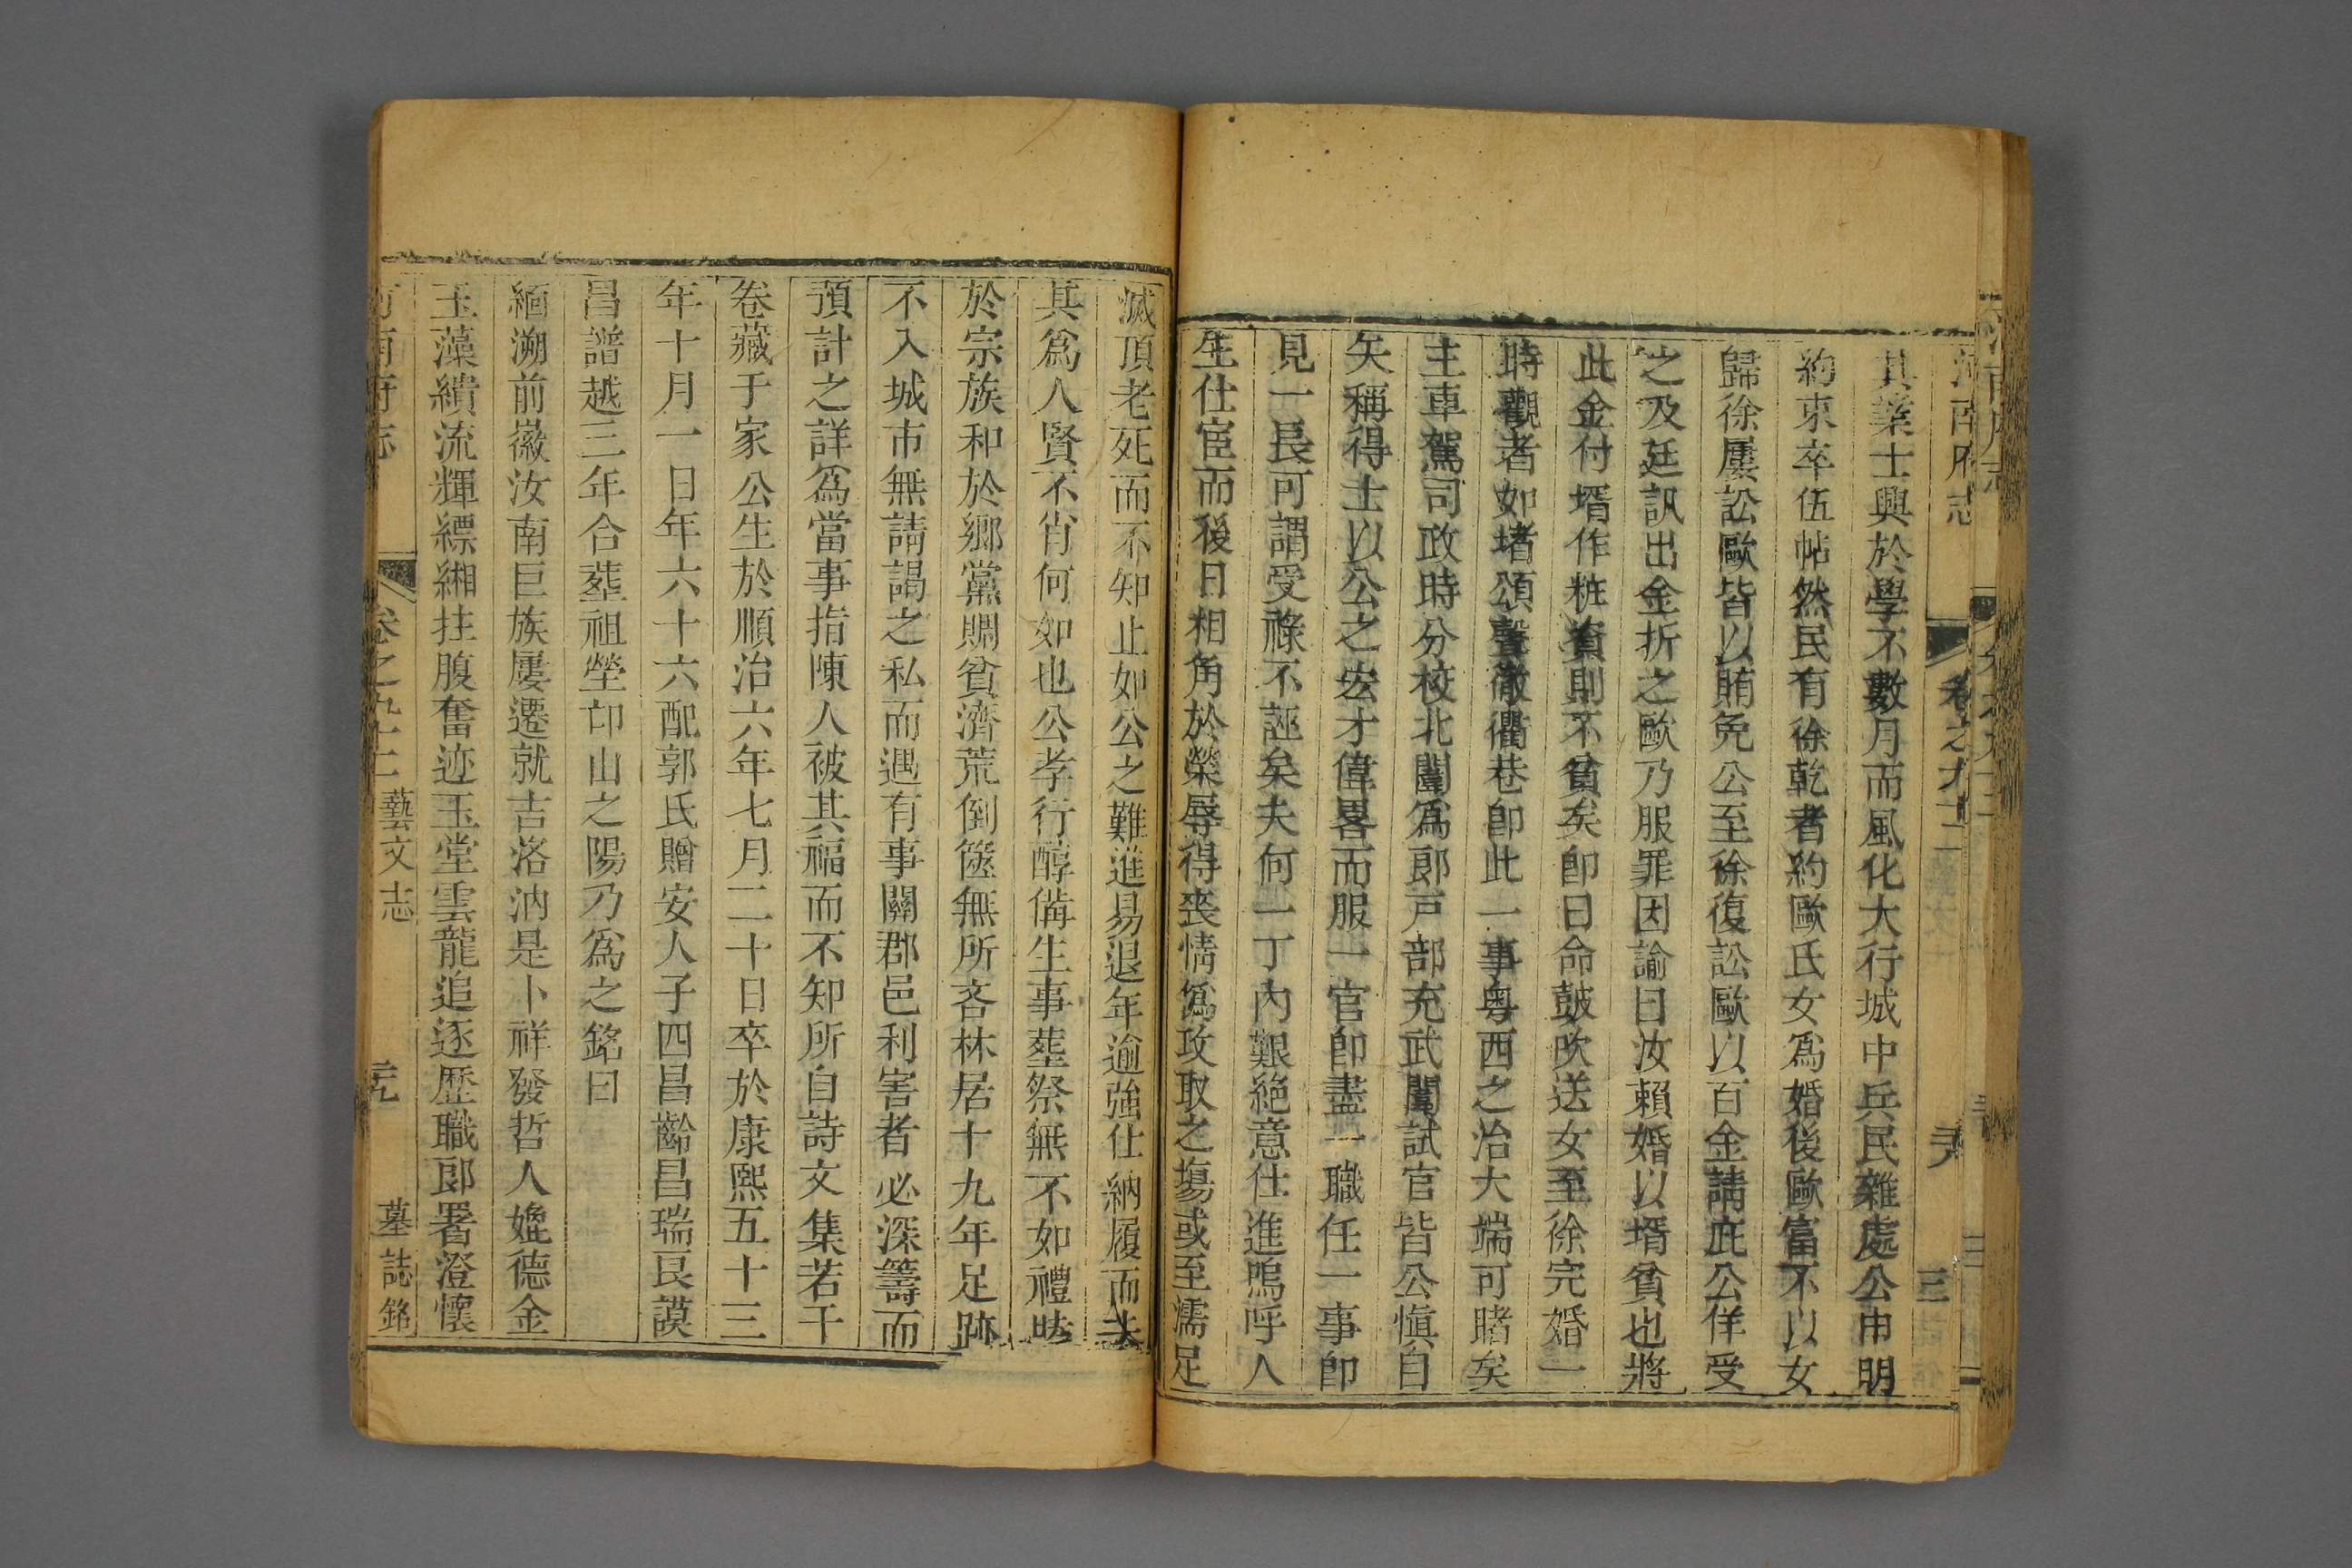 河南府志 卷之九十二 三
其業士興於學不數月而風化大行城中兵民雜處公申明
約束卒伍帖然民有徐乾者約歐氏女爲婚後歐富不以女
歸徐屢訟歐皆以賄免公至徐復訟歐以百金請庇公佯受
之及廷訊出金折之歐乃服罪因諭曰汝賴婚以壻貧也將
此金付壻作粧資則不貧矣卽日命鼓吹送女至徐完婚一
時觀者如堵頌聲徹衢巷卽此一事粤西之治大端可睹矣
主車駕司政時分校北闈爲郎戸部充武闈試官皆公愼自
矢稱得士以公之宏才偉畧而服一官卽盡一職任一事卽
見一長可謂受祿不誣矣夫何一丁內艱絶意仕進嗚呼人
生仕宦而後日相角於榮辱得喪情爲攻取之塲或至濡足
滅頂老死而不知止如公之難進易退年逾強仕納履而去
其爲人賢不肖何如也公孝行醇備生事塟祭無不如禮
於宗族和於鄉黨賙貧濟荒倒篋無所吝林居十九年足跡
不入城市無請謁之私而遇有事關郡邑利害者必深籌而
預計之詳爲當事指陳人被其福而不知所自詩文集若干
卷藏于家公生於順治六年七月二十日卒於康熙五十三
年十月一日年六十六配郭氏贈安人子四昌齡昌瑞艮謨
昌譜越三年合塟祖塋邙山之陽乃爲之銘曰
緬溯前徽汝南巨族屢遷就吉洛汭是卜祥發哲人媲德金
玉藻繢流輝縹緗拄腹奮迹玉堂雲龍追逐歷職郎署澄懷
河南府志 卷之九十二 藝文志 墓誌銘